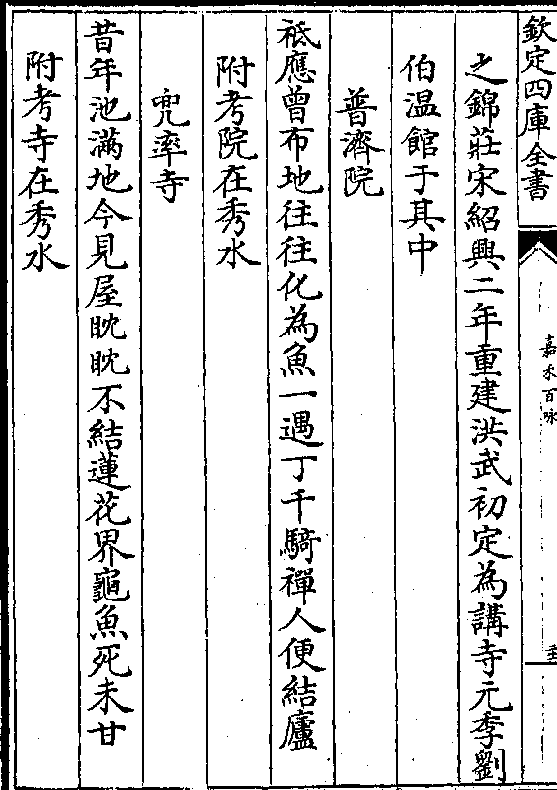 欽定四庫全書
嘉禾百咏
之錦莊宋紹興二年重建洪武初定為講寺元季劉
伯温館于其中
普濟院
祗應曾布地往往化為魚一遇丁千騎禪人便結廬
附考院在秀水
兜率寺
昔年池滿地今見屋眈眈不結蓮花界龜魚死未甘
附考寺在秀水